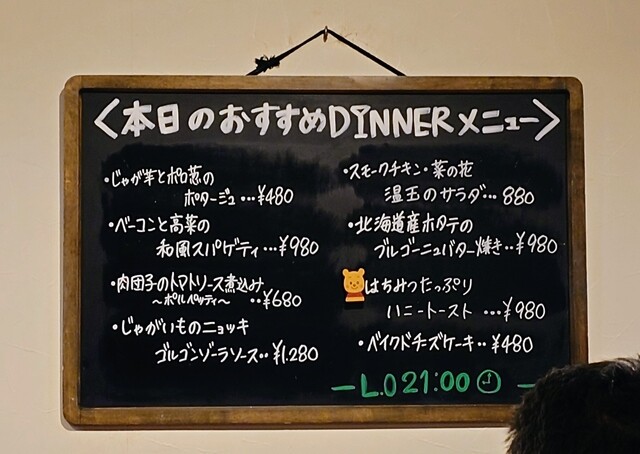 <本日のおすすめDINNERメニュー>
・じゃが芋とポロ葱の
ポタージュ…¥480
・ベーコンと高菜の
和風スパゲティ…¥980
・肉団子のトマトソース煮込み
～ポルペッティ～ ‥¥680
・じゃがいものニョッキ
ゴルゴンゾーラソース‥¥1.280
・スモークチキン・菜の花
温玉のサラダ… 880
・北海道産ホタテの
ブルゴーニュバター焼き‥¥980
はちみつたっぷり
ハニートースト …¥980
・ベイクドチーズケーキ‥¥480
－L.O 21:00 －